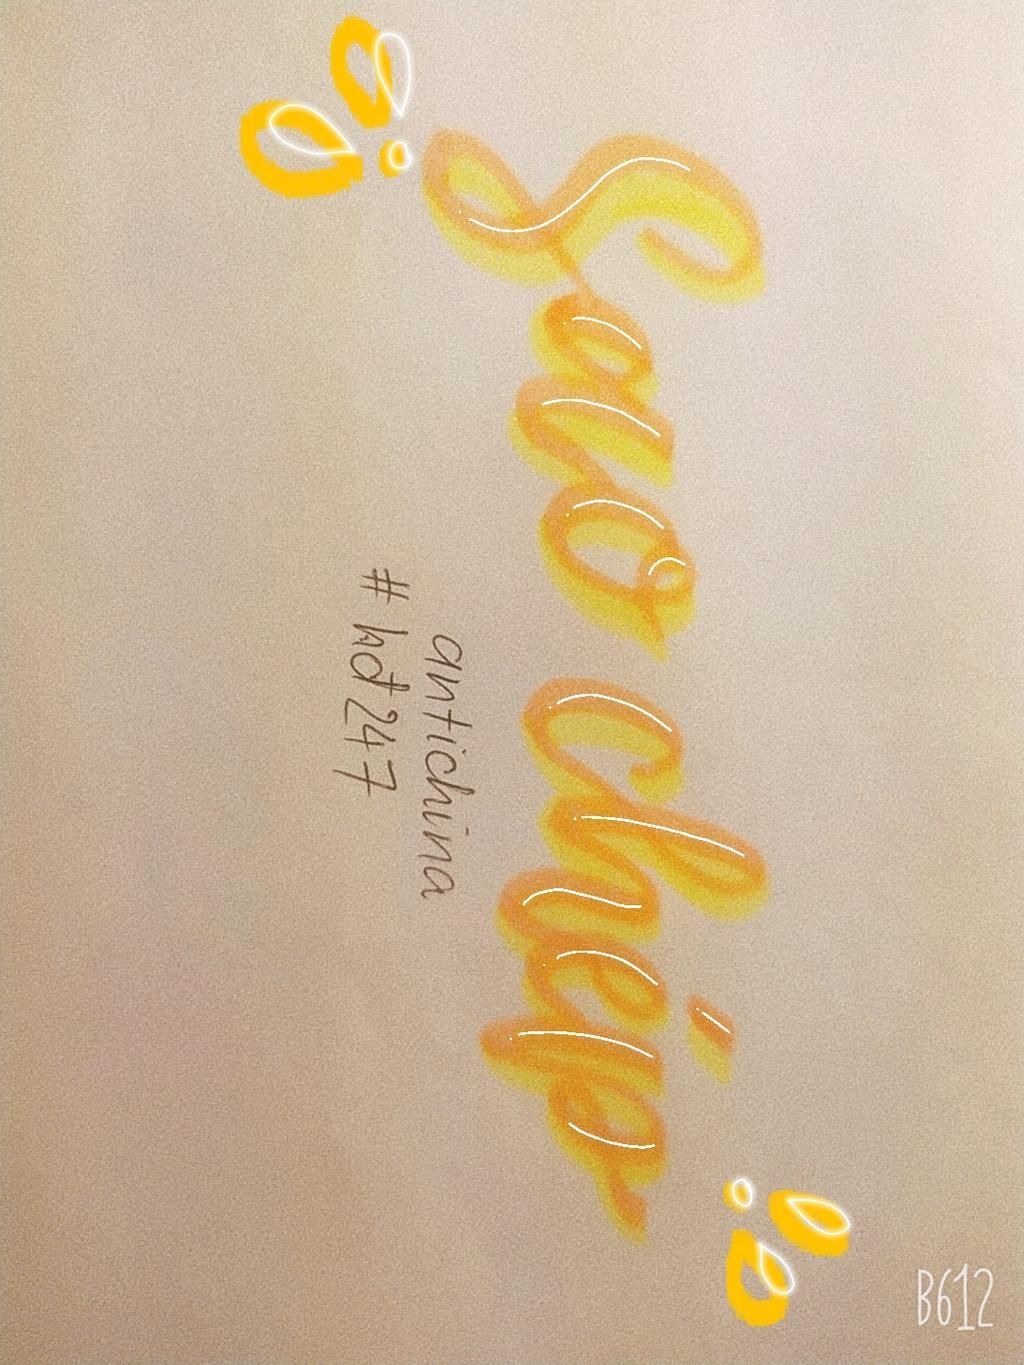 Sao chép
antichina
# hđ247
B612